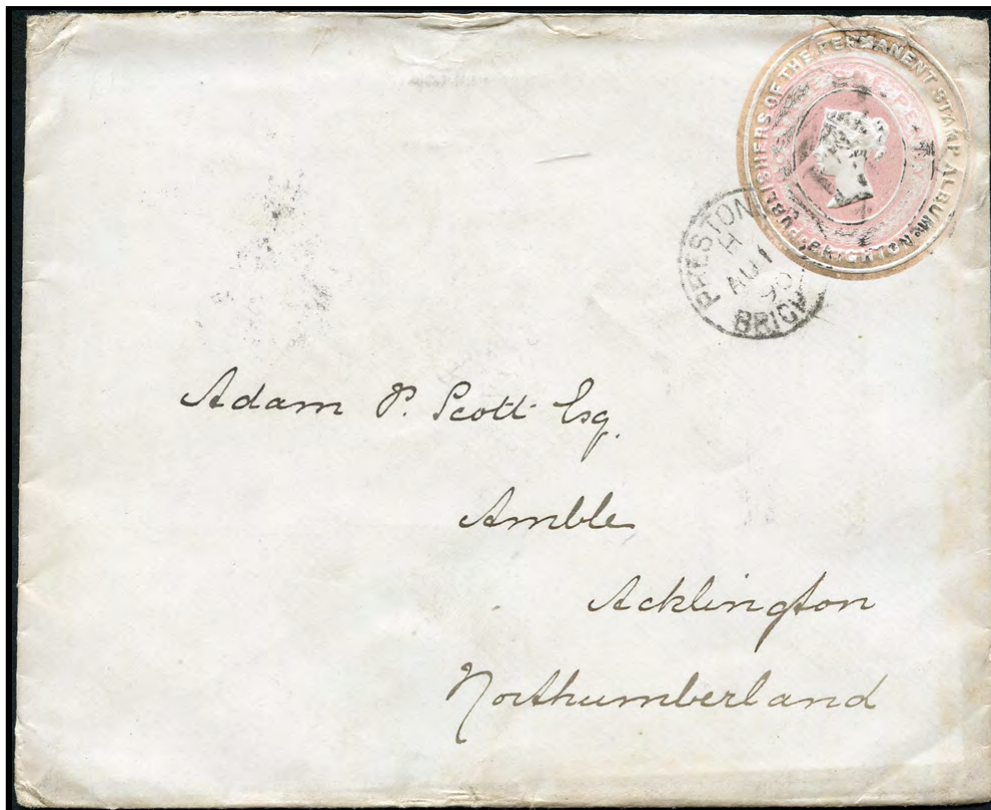 PUBLISHERS OF THE PERMANENT STAMP ALBUM
BRIGHTON
PRESTON
H
AU 1
90
Adam P. Scott Esq.
Amble
Acklington
Northumberland